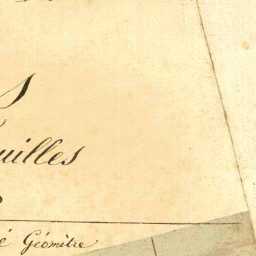 s
uilles
é Géomètre